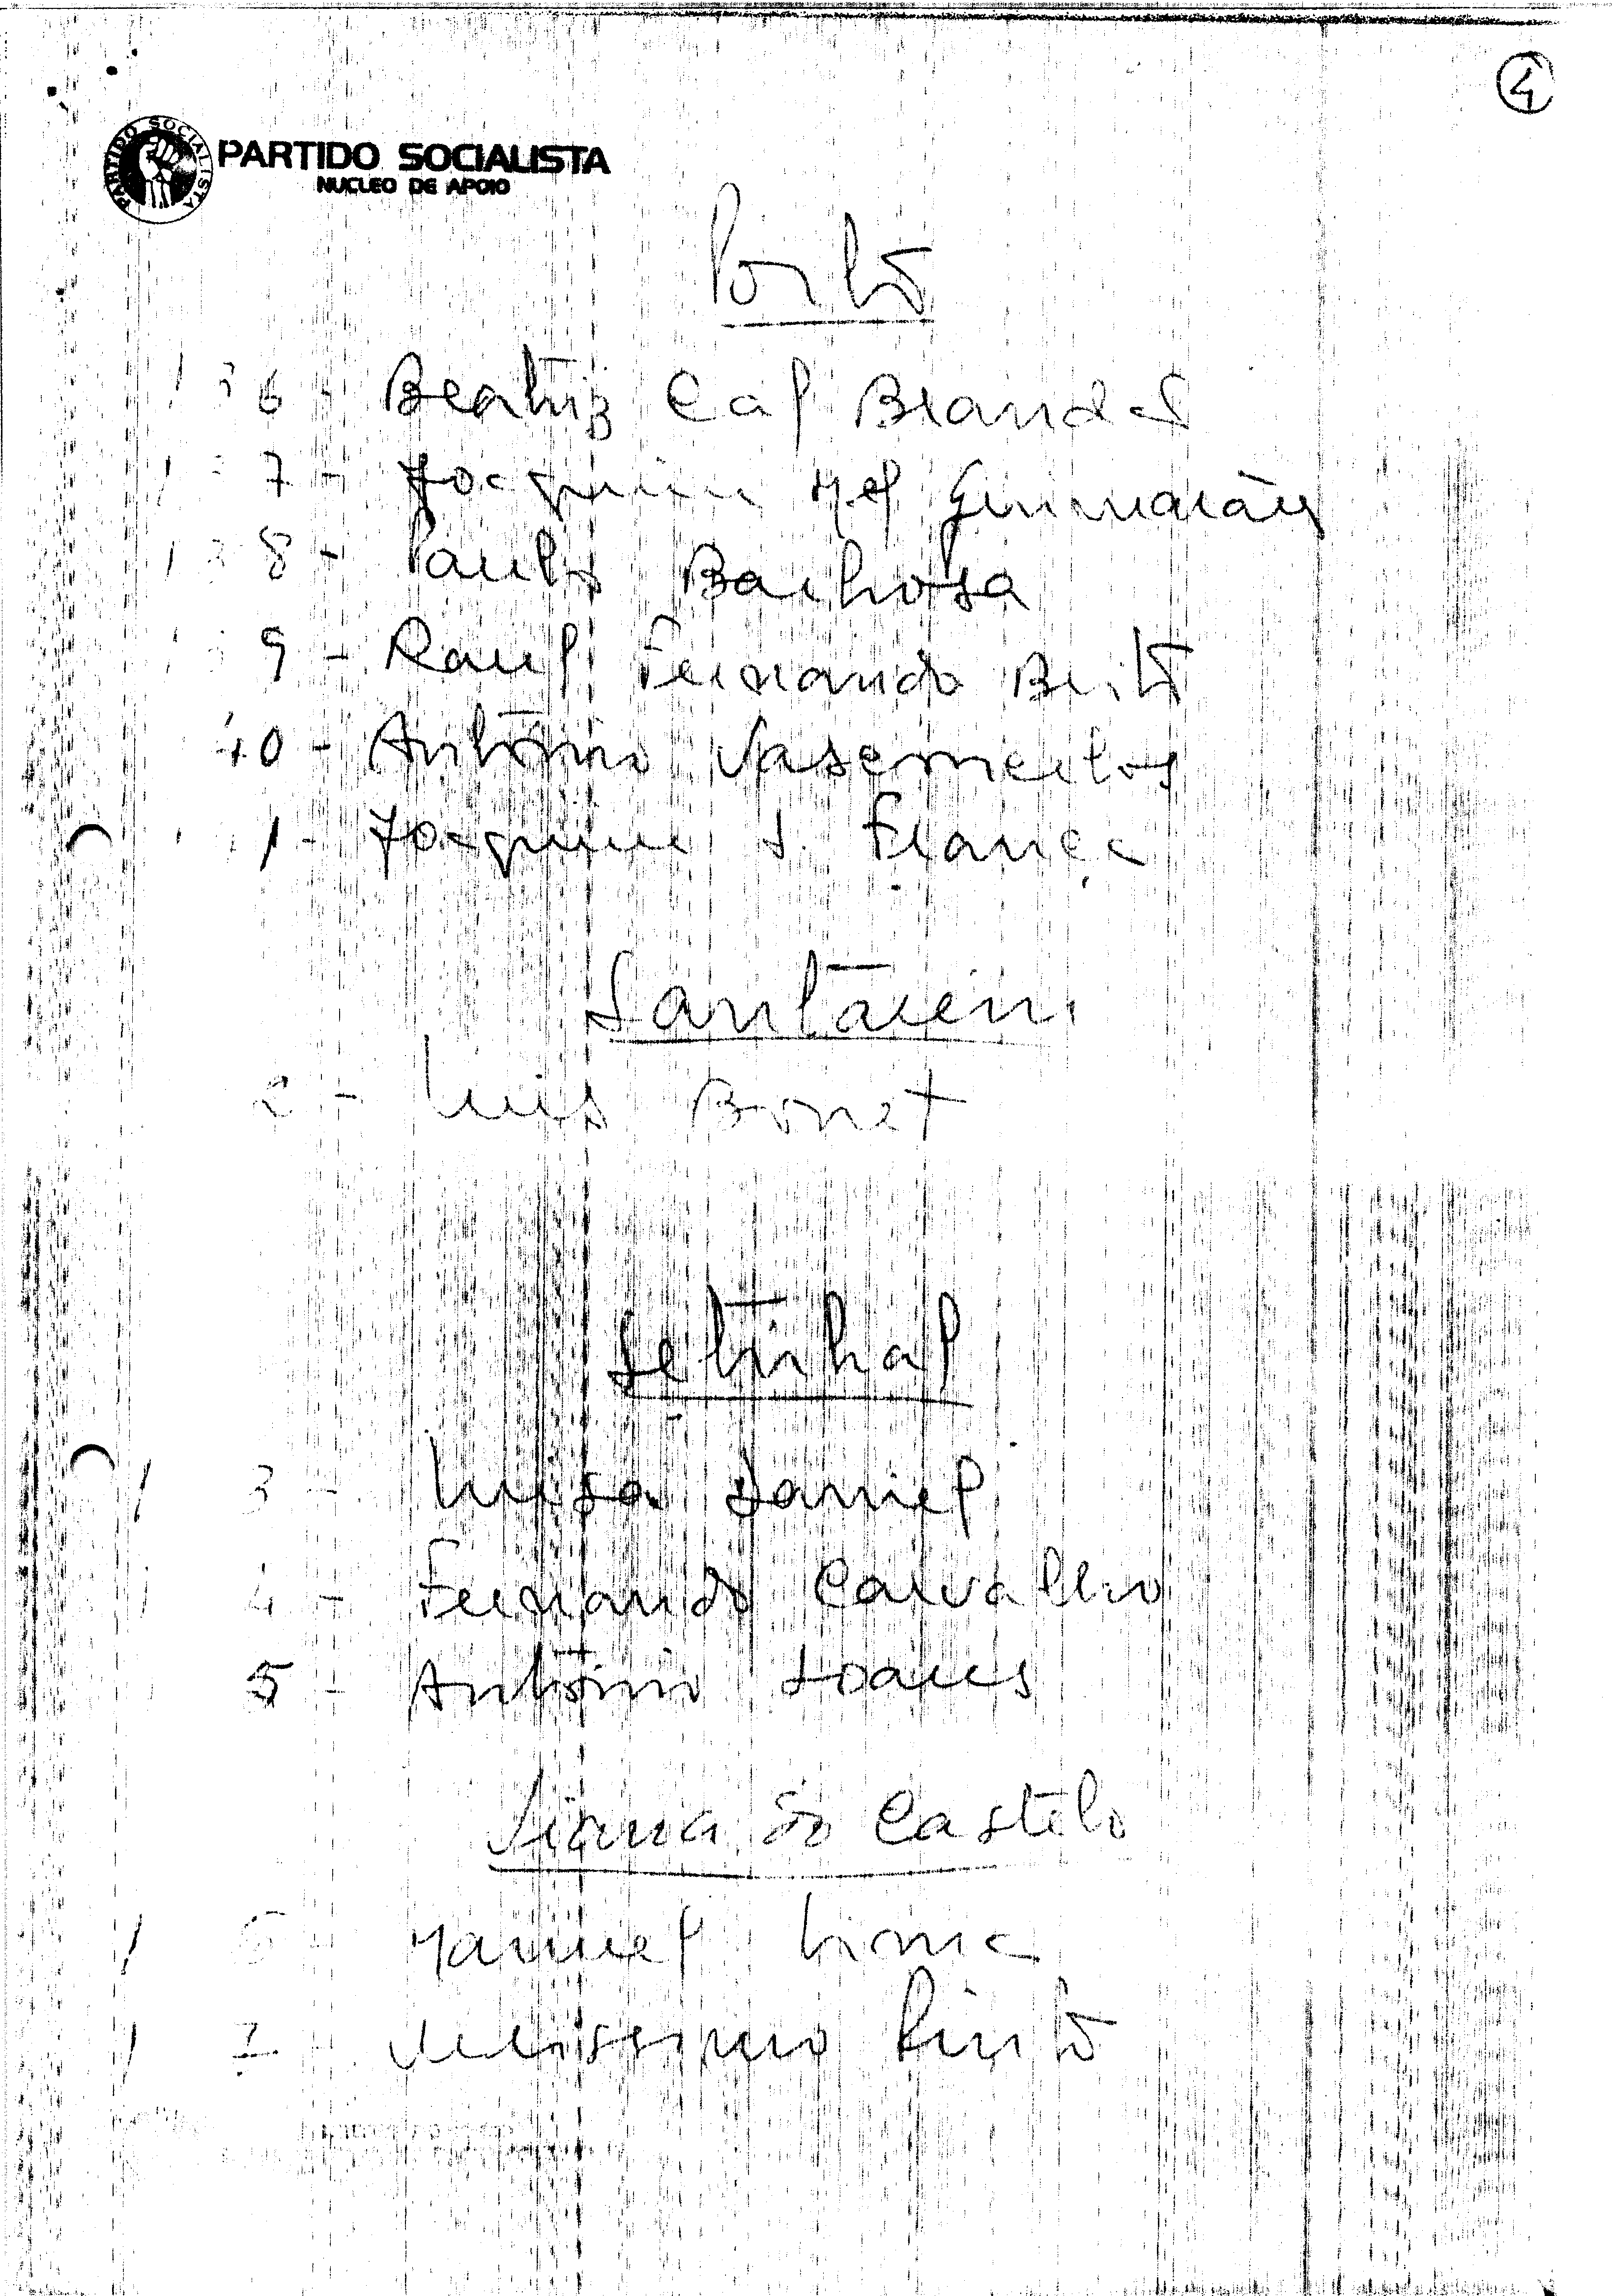 4
PARTIDO SOCIALISTA
PARTIDO SOCIALISTA
NUCLEO DE APOIO
Porto
6 - Beatriz Cal Brandão
7 - Joaquim Mel Guimarães
8 - Paulo Barbosa
9 - Raul Fernando Brito
40 - António
1 - Joaquim S. França
Santarém
2 - Luis Bonet
Setúbal
3 - Luisa Daniel
4 - Fernando Carvalho
5 - António Soares
Viana do Castelo
6 - Manuel Lima
7 - Pinto